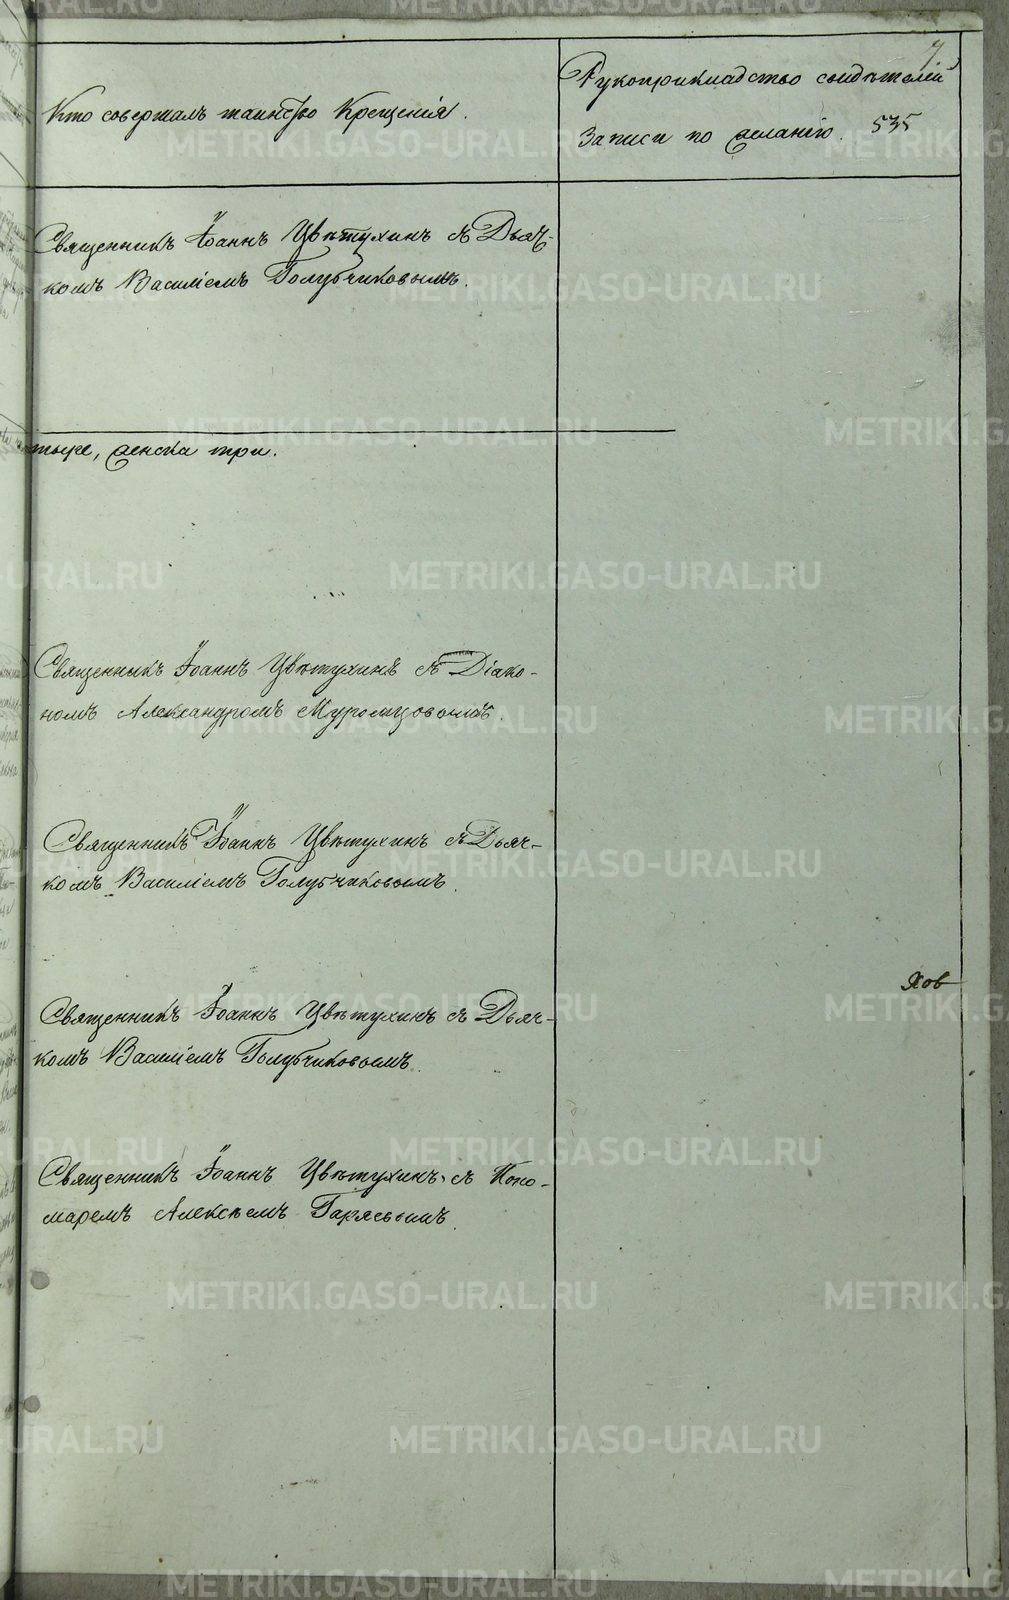 7
Кто совершалъ таинство Крещенія.
Рукоприкладство свидѣтелей
записи по желанію. 535
Священникъ Іоаннъ Цвѣтухинъ съ Дьяч-
комъ Василіемъ Голубчиковымъ.
тыре, женска три.
Священникъ Іоаннъ Цвѣтухинъ съ Діако-
номъ Александромъ Муромцовымъ.
Священникъ Іоаннъ Цвѣтухинъ съ Дьяч-
комъ Василіемъ Голубчиковымъ.
Священникъ Іоаннъ Цвѣтухинъ съ Дьяч-
комъ Василіемъ Голубчиковымъ.
ховъ
Священникъ Іоаннъ Цвѣтухинъ съ Поно-
маремъ Алексѣемъ Гаряевымъ.
METRIKI.GASO-URAL.RU